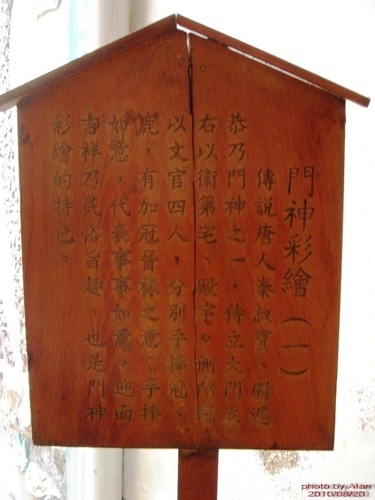 門神彩繪(一)
傳說唐人秦叔寶、尉遲
恭乃門神之一，侍立大門左
右以衛第宅、殿宇。側門飾
以文官四人，分別手捧冠、
鹿，有加冠晉祿之意，手捧
如意，代表事事如意。迎面
吉祥乃民俗旨趣，也是門神
彩繪的特色。
photo by Alan
2010/08/20